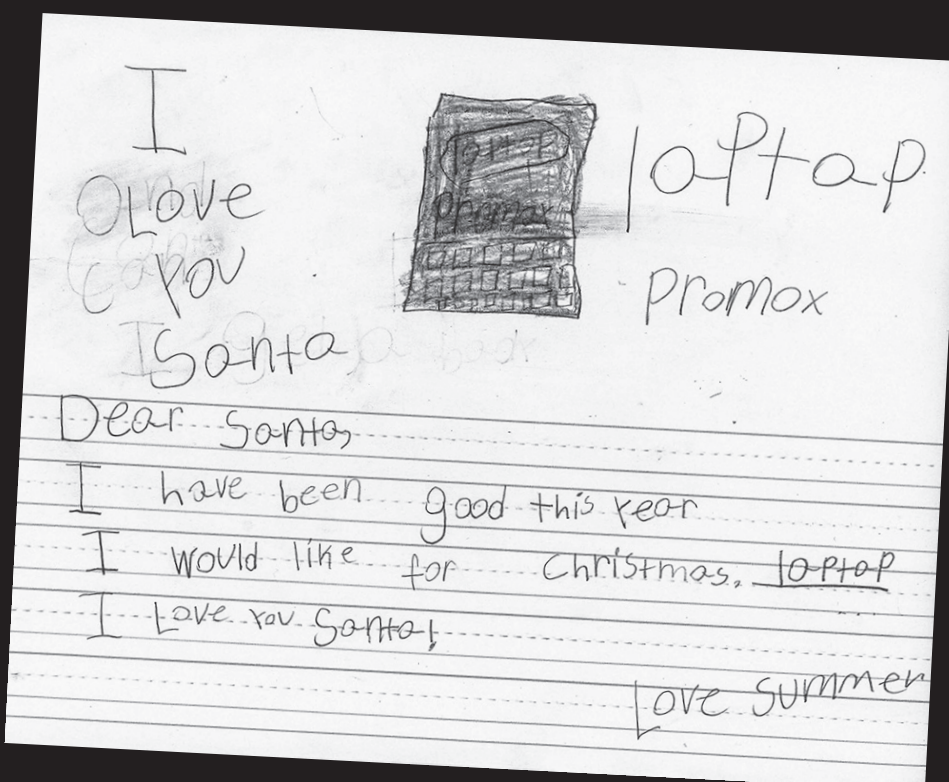 I
Love
you
Santa
laptap
promax
laptap
promox
Dear Santa,
I have been good this year
I would like for Christmas. laptap
I Love you Santa!
Love summer